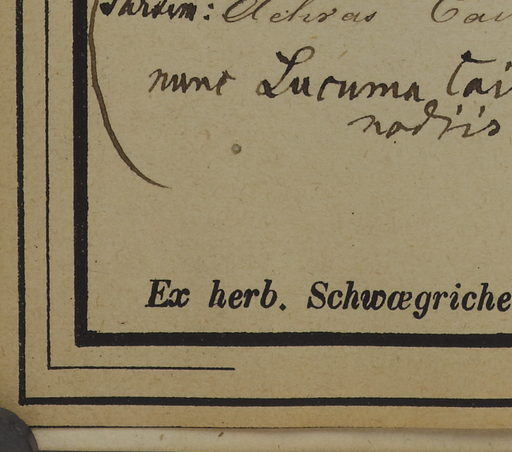 Partim: Achras Cai
nunc Lucuma Cai
nodiis
Ex herb. Schwægriche